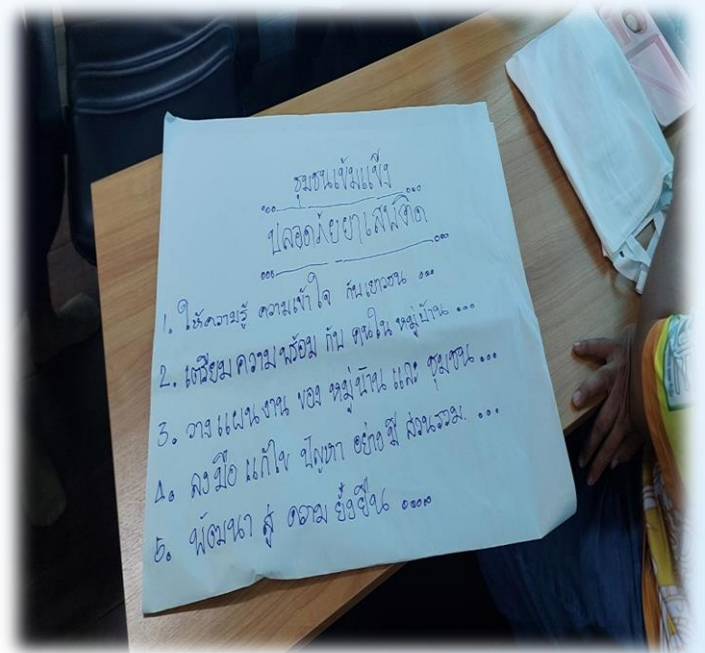 ชุมชนเข้มแข็ง
ปลอดภัยยาเสพติด
1. ให้ความรู้ ความเข้าใจ กับเยาวชน ...
2. เตรียมความพร้อม กับ คนใน หมู่บ้าน ...
3. วางแผนงาน ของ หมู่บ้าน และ ชุมชน ...
4. ลงมือ แก้ไข ปัญหา อย่าง มี ส่วนรวม. ...
5. พัฒนา สู่ ความ ยั่งยืน ....